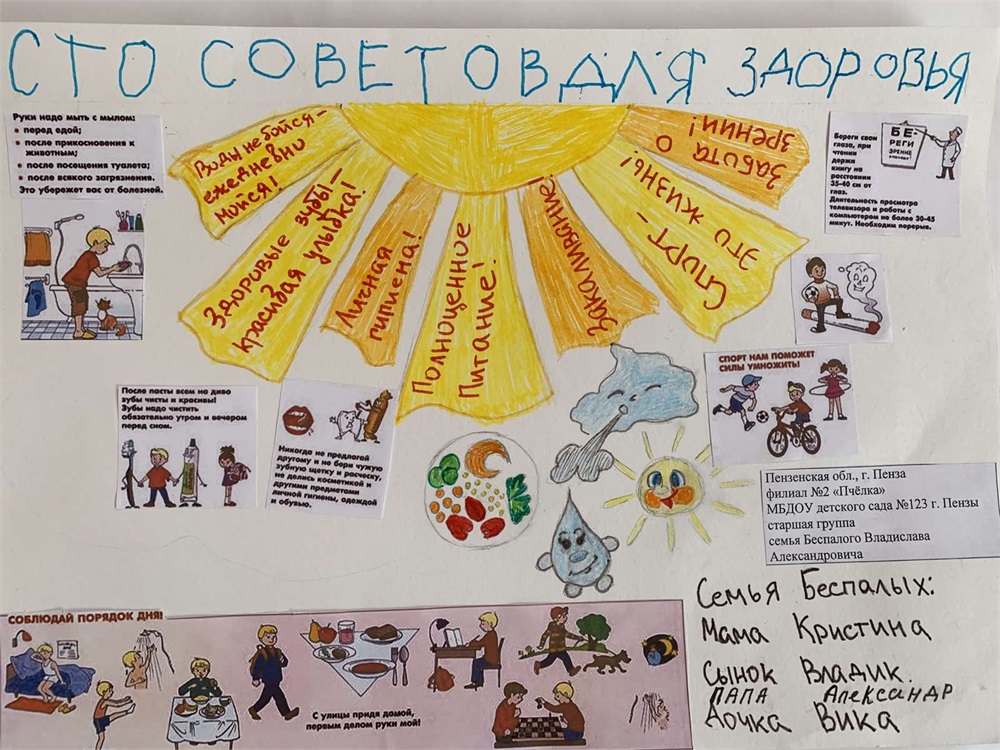 СТО СОВЕТОВ ДЛЯ ЗДОРОВЬЯ
Руки надо мыть с мылом:
• перед едой;
• после прикосновения к
животным;
• после посещения туалета;
• после всякого загрязнения.
Это убережет вас от болезней.
Воды не бойся –
ежедневно
мойся!
Здоровые зубы –
красивая улыбка!
Личная
гигиена!
Полноценное
Питание!
Закаливание
Спорт –
это жизнь!
Забота о
зрении!
Береги свои
глаза, при
чтении
держи
книгу на
расстоянии
35-40 см от
глаз.
Длительность просмотра
телевизора и работы с
компьютером не более 30-45
минут. Необходим перерыв.
БЕ-
РЕГИ
ЗРЕНИЕ
После пасты всем на диво
зубы чисты и красивы!
Зубы надо чистить
обязательно утром и вечером
перед сном.
Никогда не предлагай
другому и не бери чужую
зубную щетку и расческу,
не делись косметикой и
другими предметами
личной гигиены, одеждой
и обувью.
СПОРТ НАМ ПОМОЖЕТ
СИЛЫ УМНОЖИТЬ!
Пензенская обл., г. Пенза
филиал №2 «Пчёлка»
МБДОУ детского сада №123 г. Пензы
старшая группа
семья Беспалого Владислава
Александровича
Семья Беспалых:
Мама Кристина
Сынок Владик.
ПАПА Александр
Дочка Вика
СОБЛЮДАЙ ПОРЯДОК ДНЯ!
С улицы придя домой,
первым делом руки мой!